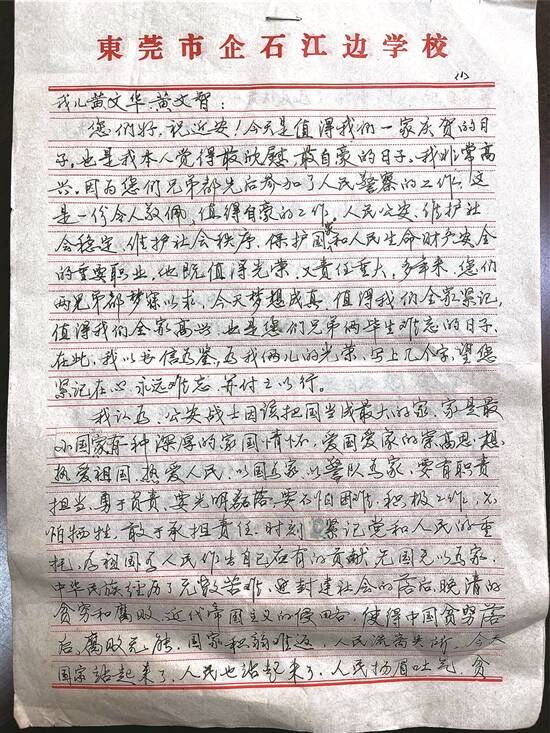 東莞市企石江边学校
(1)
我儿黄文华黄文智：
您们好，祝近安！今天是值得我们一家庆贺的日
子，也是我本人觉得最欣慰，最自豪的日子。我非常高
兴。因为您们兄弟都先后参加了人民警察的工作。这
是一份令人敬佩，值得自豪的工作。人民公安、维护社
会稳定、维护社会秩序，保护国家和人民生命财产安全
的重要职业，他既值得光荣，又责任重大，多年来，您们
两兄弟都梦寐以求，今天梦想成真，值得我们全家紧记，
值得我们全家高兴，也是您们兄弟俩毕生难忘的日子。
在此，我以书信为鉴，为我俩儿的光荣，写上几个字，望您
紧记在心，永远难忘，并付之以行。
我认为、公安战士因该把国当成最大的家，家是最
小国家有种深厚的家国情怀，爱国爱家的崇高思想，
热爱祖国，热爱人民，以国为家，以警队为家，要有职责
担当，勇于负责，要光明磊落，要不怕困难，积极工作，不
怕牺牲，敢于承担责任，时刻紧记党和人民的重
托，为祖国为人民作出自己应有的贡献。无国无以为家，
中华民族经历了无数苦难，连封建社会的落后，晚清的
贫穷和腐败，近代帝国主义的侵略，使得中国贫穷落
后，腐败无能。国家积弱难返，人民流离失所，今天
国家站起来了，人民也站起来了，人民扬眉吐气，贫